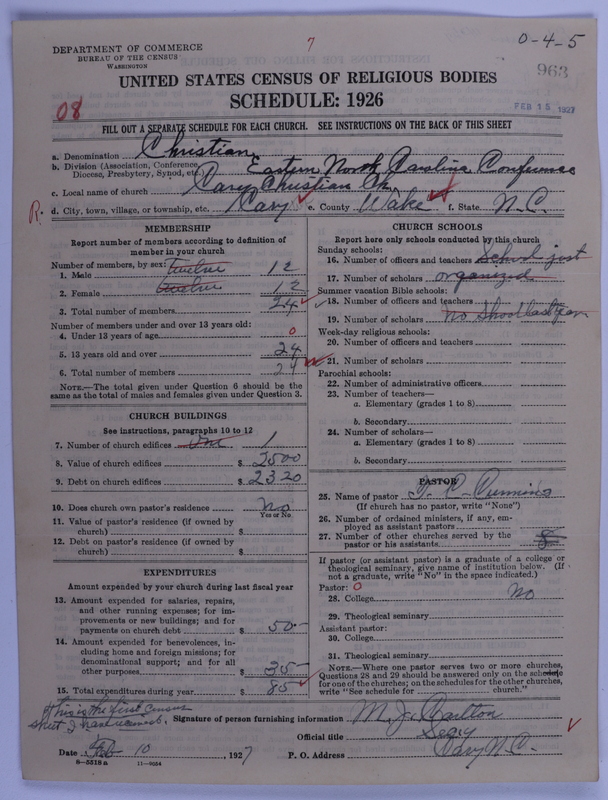 DEPARTMENT OF COMMERCE
BUREAU OF THE CENSUS
WASHINGTON
7
0-4-5
963
UNITED STATES CENSUS OF RELIGIOUS BODIES
SCHEDULE: 1926
08
FEB 15 1927
FILL OUT A SEPARATE SCHEDULE FOR EACH CHURCH. SEE INSTRUCTIONS ON THE BACK OF THIS SHEET
a. Denomination Christian
b. Division (Association, Conference, Diocese, Presbytery, Synod, etc.) Eastern North Carolina Conference
c. Local name of church Cary Christian Ch.
R. d. City, town, village, or township, etc. Cary e. County Wake f. State N.C.
MEMBERSHIP
Report number of members according to definition of
member in your church
Number of members, by sex:
1. Male twelve 12
2. Female twelve 12
3. Total number of members 24
Number of members under and over 13 years old:
4. Under 13 years of age 0
5. 13 years old and over 24
6. Total number of members 24
NOTE.—The total given under Question 6 should be
same as the total of males and females given under Question 3.
CHURCH BUILDINGS
See instructions, paragraphs 10 to 12
7. Number of church edifices One 1
8. Value of church edifices $ 2500
9. Debt on church edifices $ 2320
10. Does church own pastor's residence No
Yes or No
11. Value of pastor's residence (if owned by
church) $
12. Debt on pastor's residence (if owned by
church) $
EXPENDITURES
Amount expended by your church during last fiscal year
13. Amount expended for salaries, repairs,
and other running expenses; for im-
provements or new buildings; and for
payments on church debt $ 50-
14. Amount expended for benevolences, in-
cluding home and foreign missions; for
denominational support; and for all
other purposes $ 35-
15. Total expenditures during year $ 85
CHURCH SCHOOLS
Report here only schools conducted by this church
Sunday schools:
16. Number of officers and teachers School just
17. Number of scholars organized
Summer vacation Bible schools:
18. Number of officers and teachers
19. Number of scholars no School last year
Week-day religious schools:
20. Number of officers and teachers
21. Number of scholars
Parochial schools:
22. Number of administrative officers
23. Number of teachers—
a. Elementary (grades 1 to 8)
b. Secondary
24. Number of scholars—
a. Elementary (grades 1 to 8)
b. Secondary
PASTOR
25. Name of pastor
(If church has no pastor, write "None")
26. Number of ordained ministers, if any, em-
ployed as assistant pastors
27. Number of other churches served by the
pastor or his assistants
If pastor (or assistant pastor) is a graduate of a college or
theological seminary, give name of institution below. (If
not a graduate, write "No" in the space indicated.)
Pastor: 0
28. College No
29. Theological seminary
Assistant pastor:
30. College
31. Theological seminary
NOTE.—Where one pastor serves two or more churches,
Questions 28 and 29 should be answered only on the schedule
for one of the churches; on the schedules for the other churches,
write "See schedule for church."
this is the first census
sheet I have received.
Signature of person furnishing information M. J. Carlton
Official title Secy
Date Feb 10, 1927 P. O. Address Cary N.C.
8-5318 a 11-9034